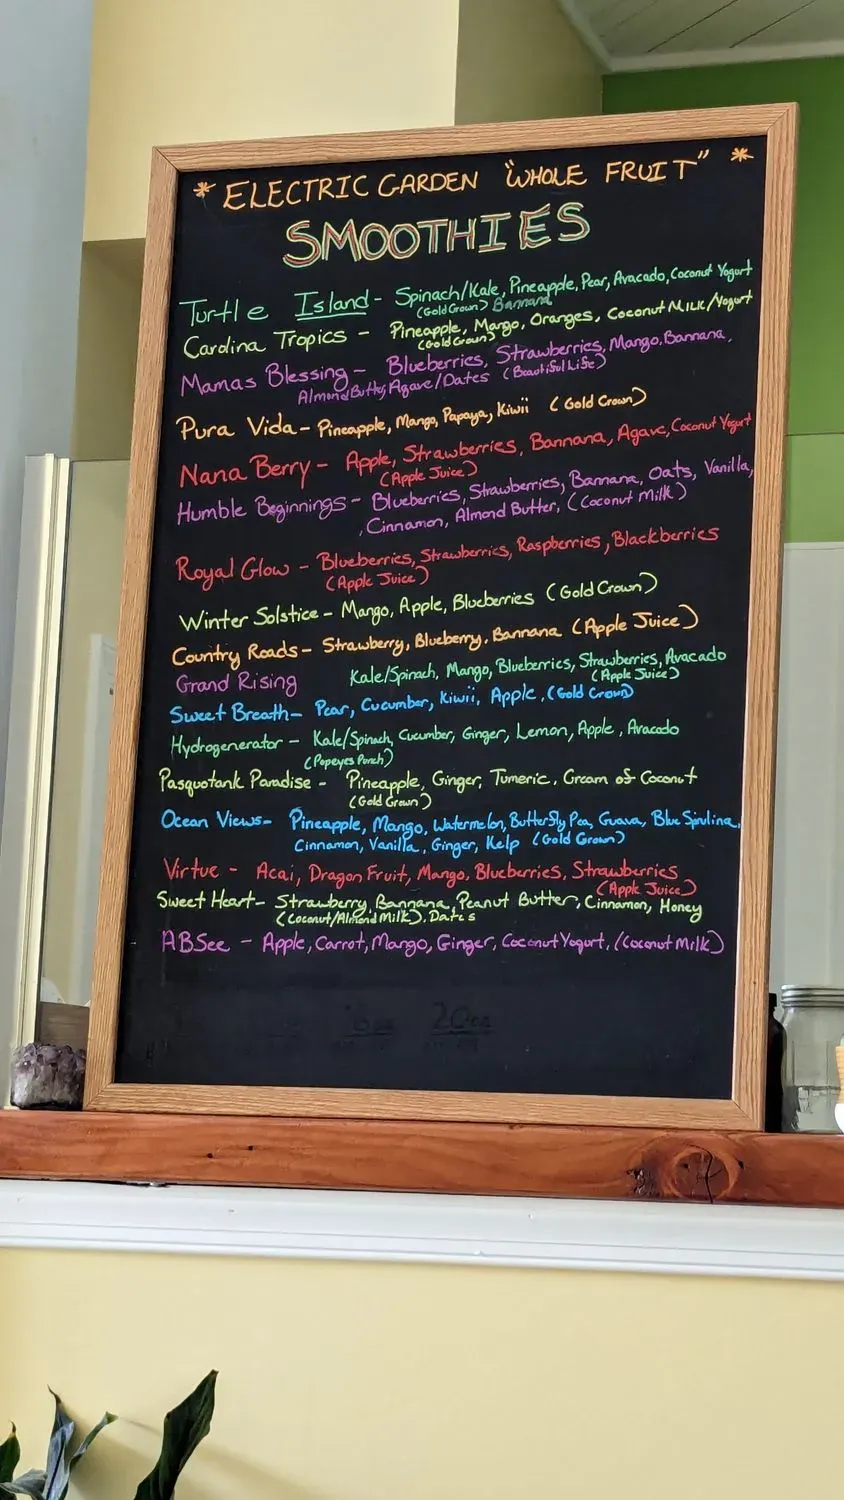 * ELECTRIC GARDEN "WHOLE FRUIT" *
SMOOTHIES
Turtle Island - Spinach/Kale, Pineapple, Pear, Avacado, Coconut Yogurt
(Gold Crown) Bannana
Carolina Tropics - Pineapple, Mango, Oranges, Coconut Milk/Yogurt
(Gold Crown)
Mamas Blessing - Blueberries, Strawberries, Mango, Bannana,
Almond Butter, Agave/Dates (Beautiful Life)
Pura Vida - Pineapple, Mango, Papaya, Kiwii (Gold Crown)
Nana Berry - Apple, Strawberries, Bannana, Agave, Coconut Yogurt
(Apple Juice)
Humble Beginnings - Blueberries, Strawberries, Bannana, Oats, Vanilla,
, Cinnamon, Almond Butter, (Coconut Milk)
Royal Glow - Blueberries, Strawberries, Raspberries, Blackberries
(Apple Juice)
Winter Solstice - Mango, Apple, Blueberries (Gold Crown)
Country Roads - Strawberry, Blueberry, Bannana (Apple Juice)
Grand Rising Kale/Spinach, Mango, Blueberries, Strawberries, Avacado
(Apple Juice)
Sweet Breath - Pear, Cucumber, Kiwii, Apple, (Gold Crown)
Hydrogenerator - Kale/Spinach, Cucumber, Ginger, Lemon, Apple, Avacado
(Popeyes Punch)
Pasquotank Paradise - Pineapple, Ginger, Tumeric, Cream of Coconut
(Gold Crown)
Ocean Views - Pineapple, Mango, Watermelon, Butterfly Pea, Guava, Blue Spirulina,
Cinnamon, Vanilla, Ginger, Kelp (Gold Crown)
Virtue - Acai, Dragon Fruit, Mango, Blueberries, Strawberries
(Apple Juice)
Sweet Heart - Strawberry, Bannana, Peanut Butter, Cinnamon, Honey
(Coconut/Almond Milk), Dates
ABSee - Apple, Carrot, Mango, Ginger, Coconut Yogurt, (Coconut Milk)
16oz 20oz